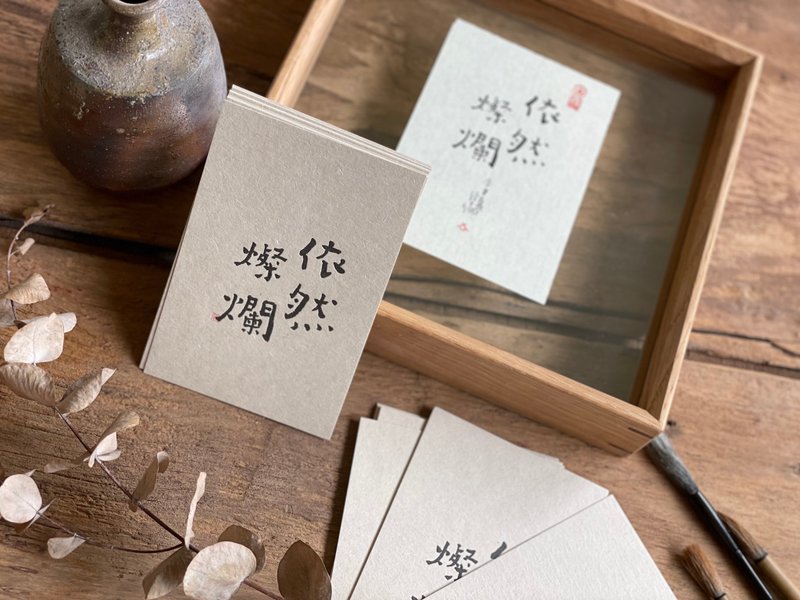 依然
燦爛
依然
燦爛
燦